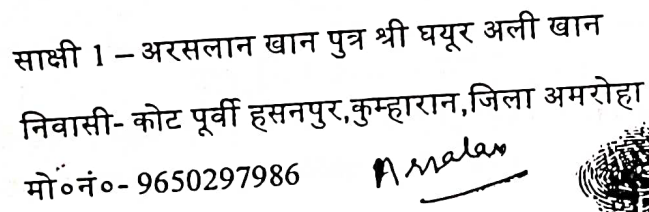 साक्षी 1 – अरसलान खान पुत्र श्री घयूर अली खान
निवासी- कोट पूर्वी हसनपुर,कुम्हारान,जिला अमरोहा
मो॰नं॰- 9650297986 Arsalan